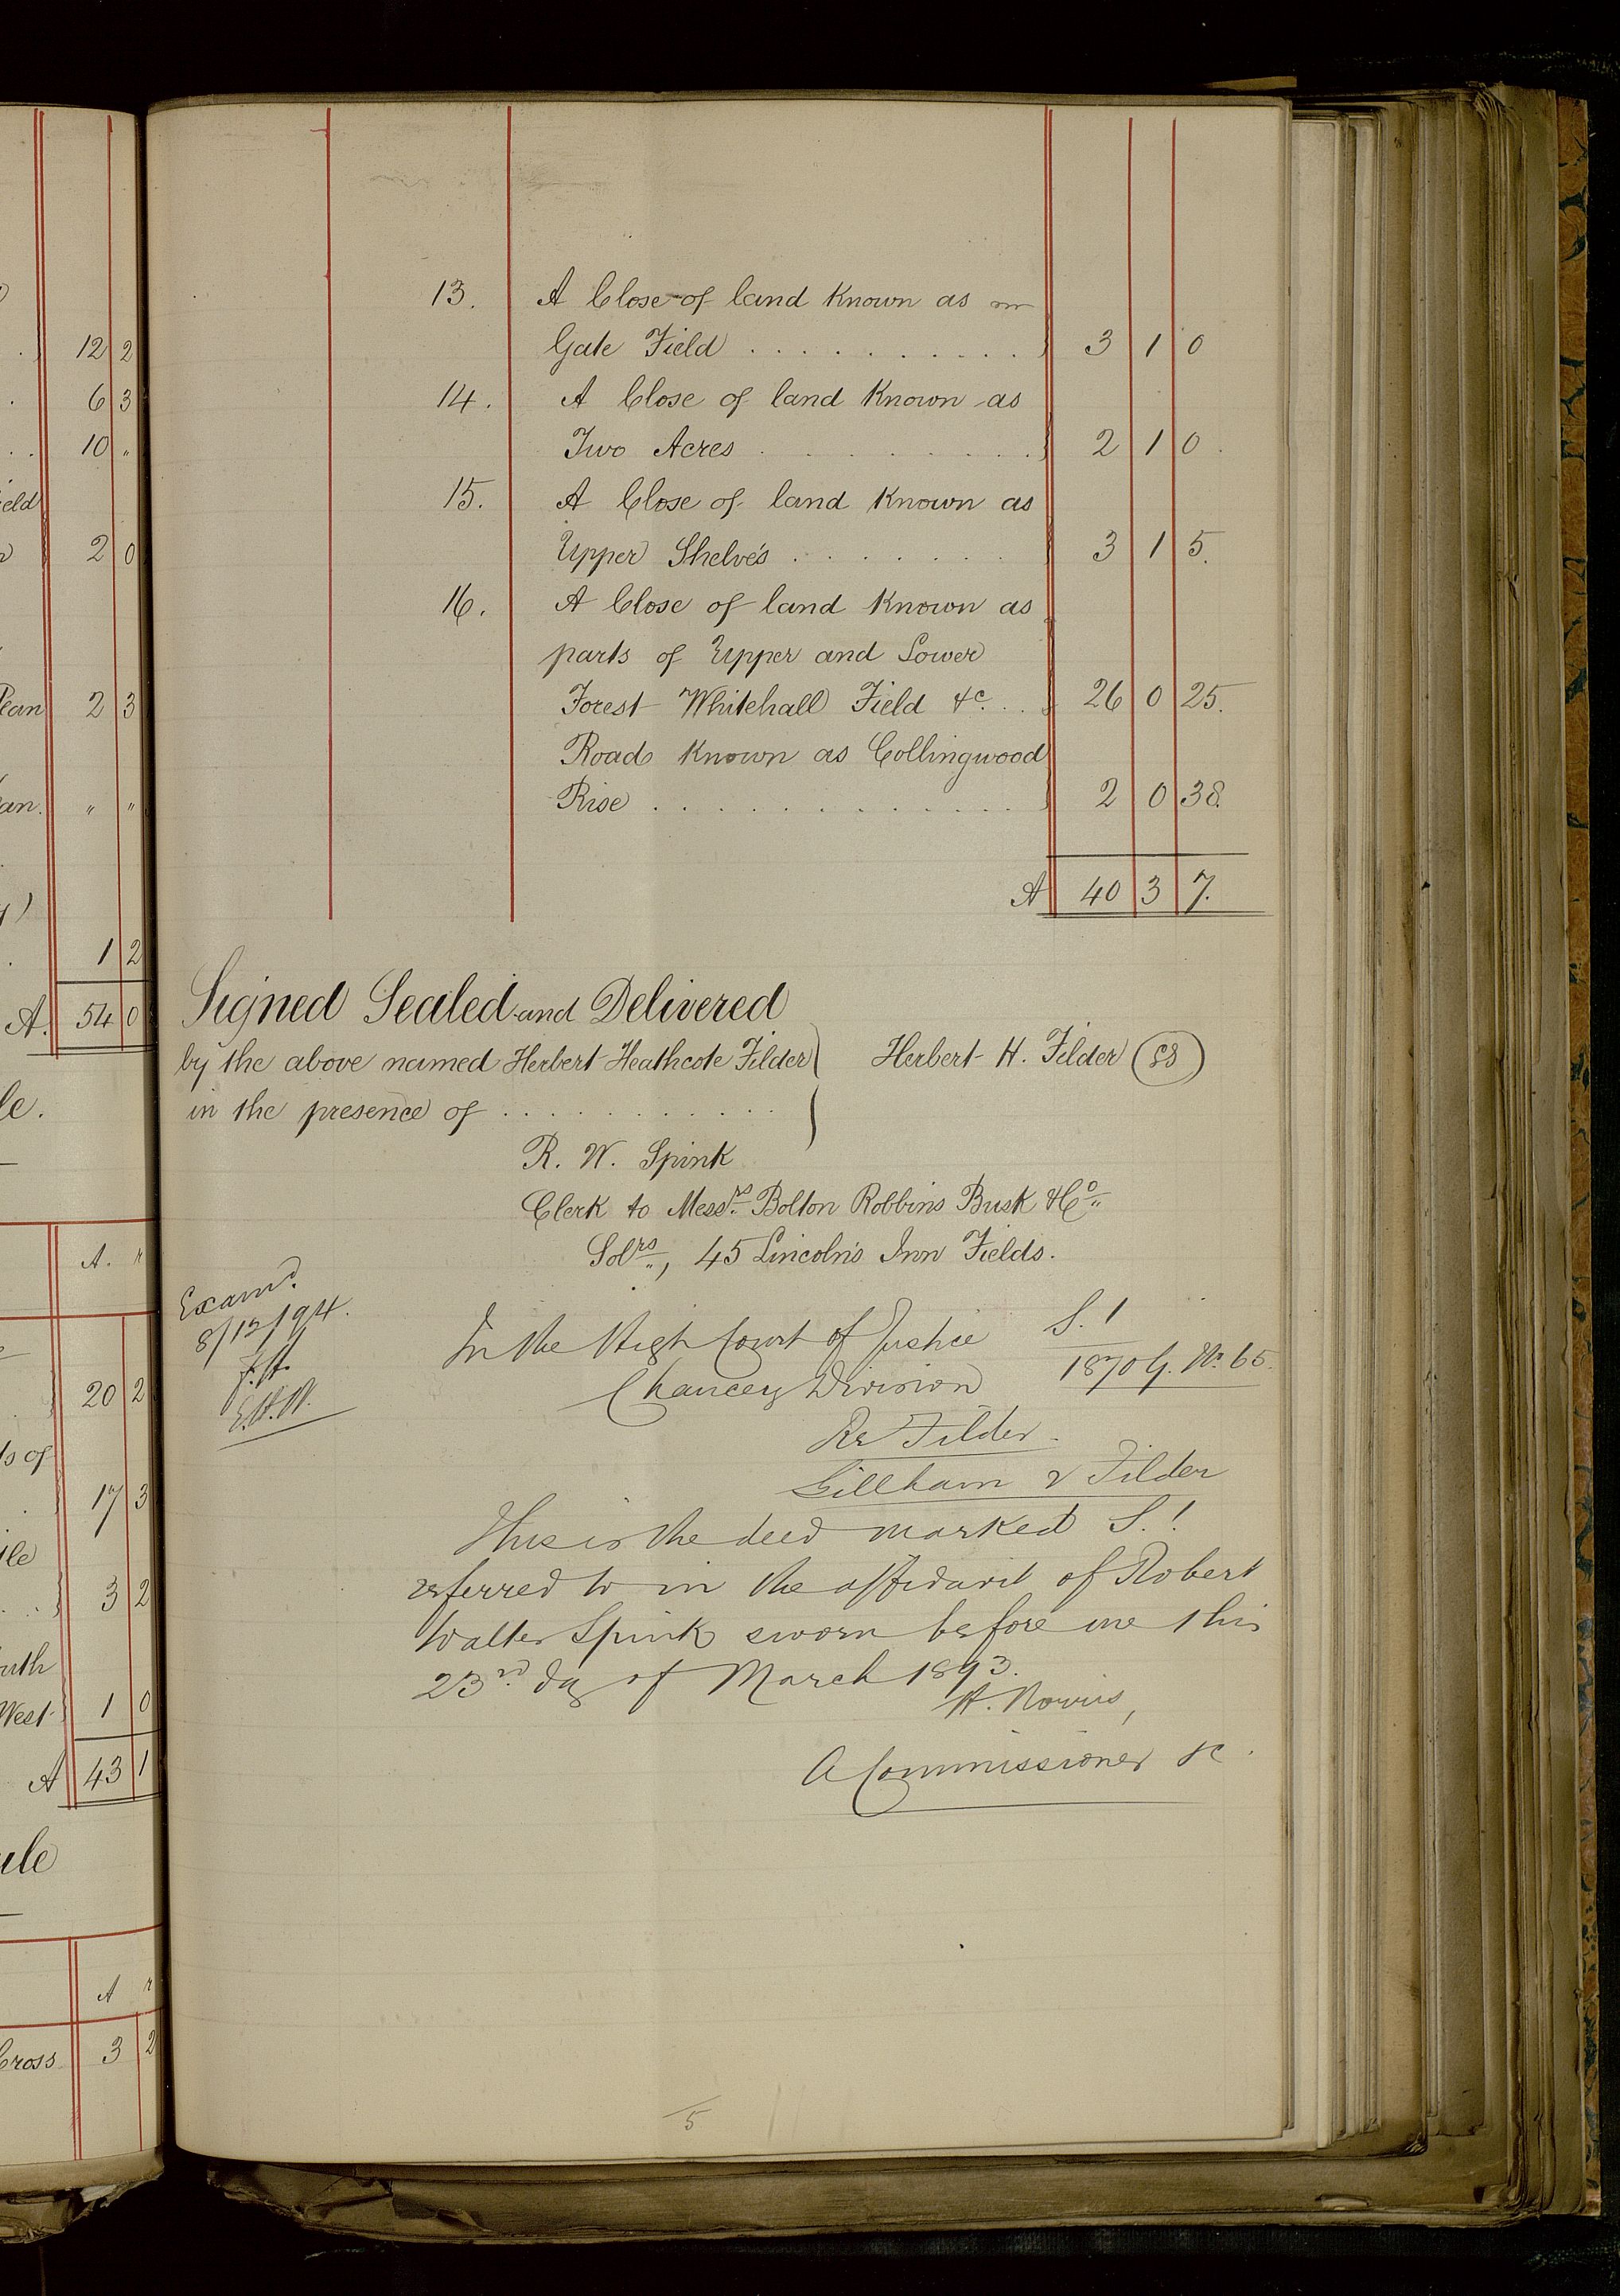 12 2
6 3
10 "
ield
2 0
Plan 2 3
" "
1 2
A. 54 0
le.
A. r
20 2
ts of
17 3
ile
3 2
outh
West 1 0
A 43 1
ule
A r
Cross 3 2
13. A Close of land Known as
Gate Field . . . . . . . . . . . 3 1 0
14. A Close of land Known as
Two Acres . . . . . . . . . . 2 1 0.
15. A Close of land Known as
Upper Shelve's . . . . . . . . 3 1 5.
16. A Close of land Known as
parts of Upper and Lower
Forest Whitehall Field &c. . . 26 0 25.
Road Known as Collingwood
Rise . . . . . . . . . . . . . 2 0 38.
A 40 3 7.
Signed Sealed and Delivered
by the above named Herbert Heathcote Filder } Herbert H. Filder (LS)
in the presence of . . . . . . . . . . . .
R. W. Spink
Clerk to Messrs. Bolton Robbins Busk & Co.
Solrs., 45 Lincoln's Inn Fields.
Examd.
8/12/94.
F.H.
E.H.W.
In the High Court of Justice S. 1
Chancey Division 1870 G. No. 65.
Re Filder.
Gillham v Filder
This is the deed marked S. 1
referred to in the affidavit of Robert
Walter Spink sworn before me this
23rd. day of March 1893.
H. Norris,
A Commissioner &c.
5